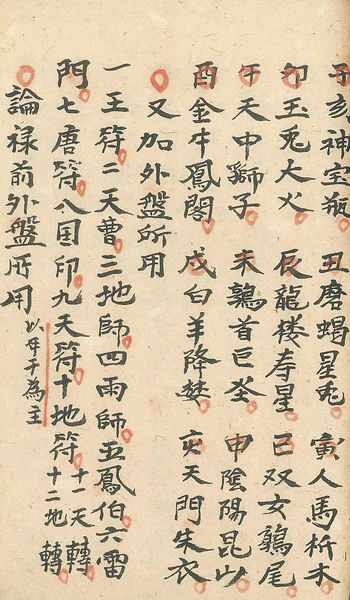 子亥神宝瓶 丑磨蝎星兎 寅人馬析木
卯玉兎大火 辰龍楼寿星 巳双女鶉尾
午天中獅子 未鶉首巨 申陰陽昆山
酉金牛鳳閣 戌白羊降婁 亥天門朱衣
又加外盤所用
一王符二天曹三地師四雨師五鳳伯六雷
門七唐符八国印九天符十地符十一天轉十二地轉
論禄前外盤所用 以年干為主